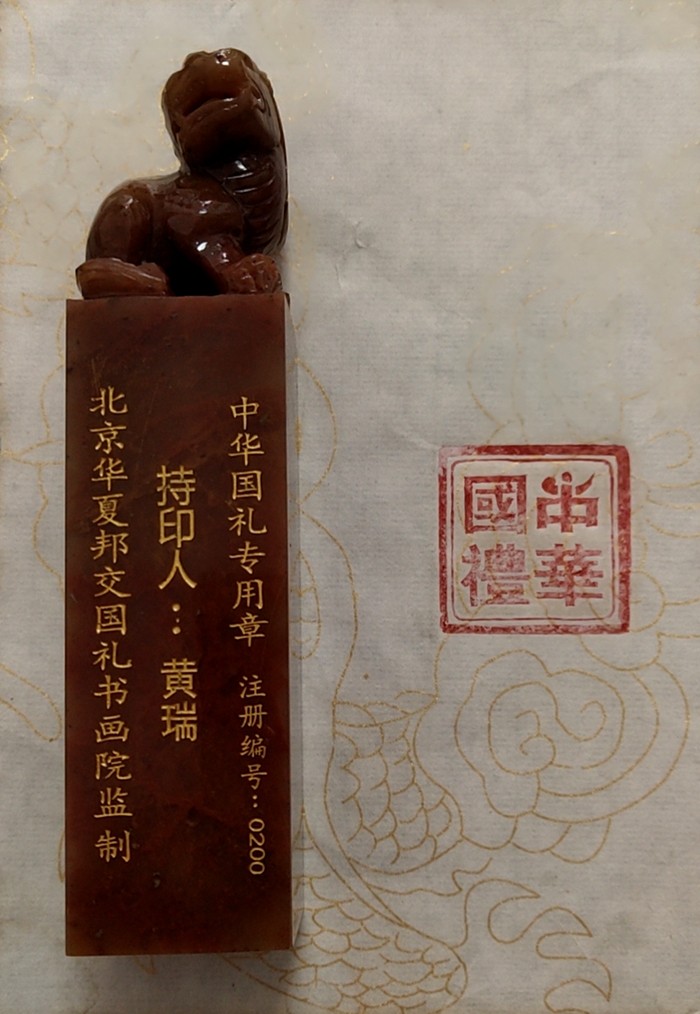 中华国礼专用章 注册编号：0200
持印人：黄瑞
北京华夏邦交国礼书画院监制
中華
國禮